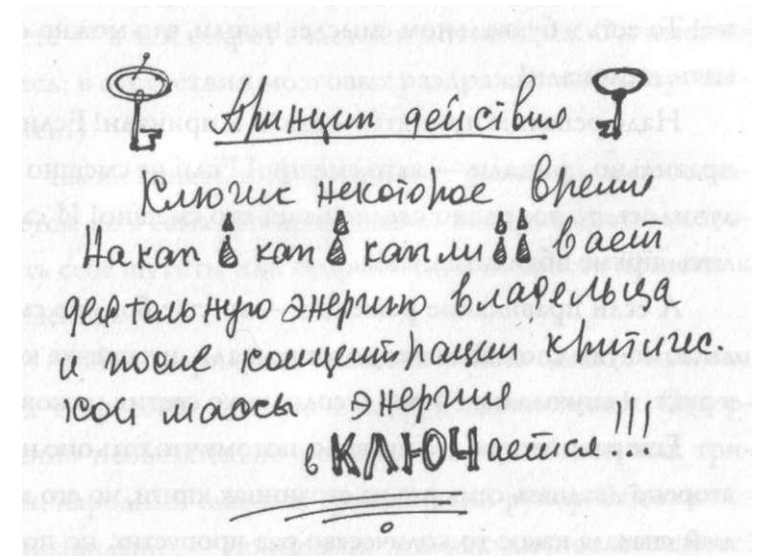 Принцип действия
Ключик некоторое время
Накап кап капли вает
деятельную энергию владельца
и после концентрации критичес-
кой массы энергии
вКЛЮЧается!!!